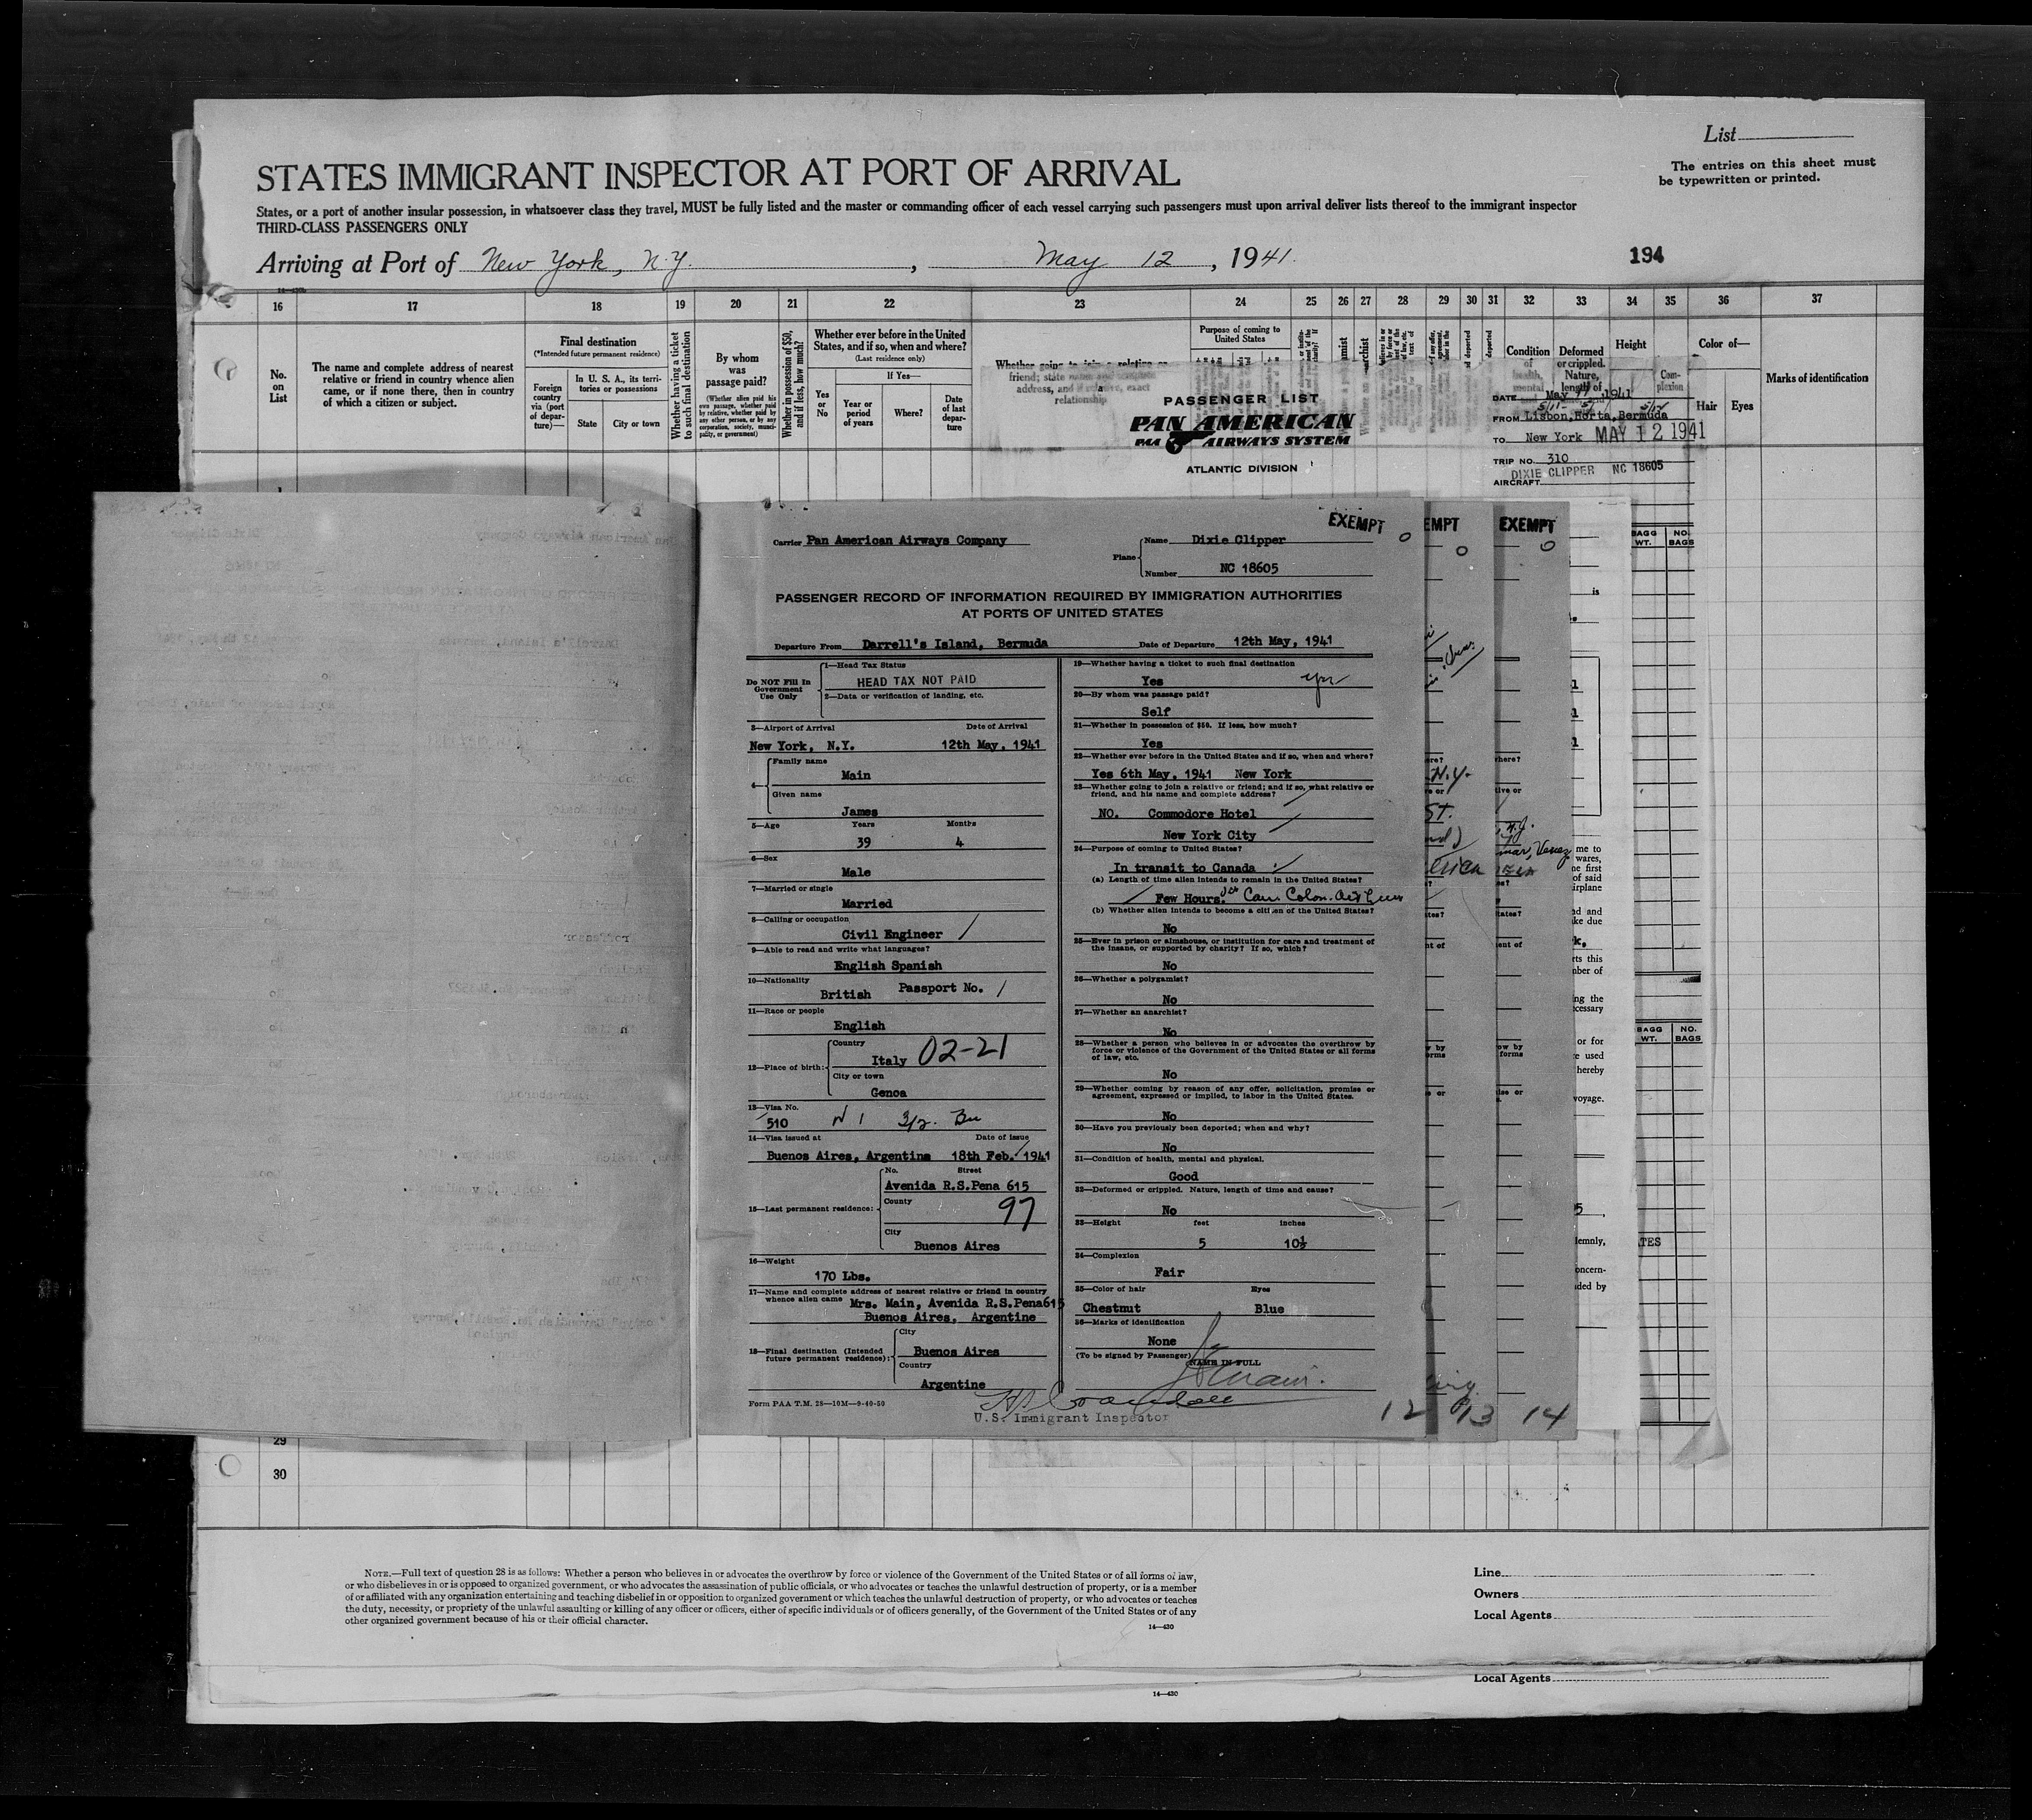 List
The entries on this sheet must
be typewritten or printed.
STATES IMMIGRANT INSPECTOR AT PORT OF ARRIVAL
States, or a port of another insular possession, in whatsoever class they travel, MUST be fully listed and the master or commanding officer of each vessel carrying such passengers must upon arrival deliver lists thereof to the immigrant inspector
THIRD-CLASS PASSENGERS ONLY
Arriving at Port of New York, N.Y. , May 12 , 1941.
194
16 17 18 19 20 21 22 23 24 25 26 27 28 29 30 31 32 33 34 35 36 37
No.
on
List
The name and complete address of nearest
relative or friend in country whence alien
came, or if none there, then in country
of which a citizen or subject.
Final destination
(*Intended future permanent residence)
Foreign
country
via (port
of depar-
ture)—
In U. S. A., its terri-
tories or possessions
State
City or town
Whether having a ticket
to such final destination
By whom
was
passage paid?
(Whether alien paid his
own passage, whether paid
by relative, whether paid by
any other person, or by any
corporation, society, munici-
pality, or government)
Whether in possession of $50,
and if less, how much?
Whether ever before in the United
States, and if so, when and where?
(Last residence only)
Yes
or
No
If Yes—
Year or
period
of years
Where?
Date
of last
depar-
ture
Whether going to join a relative or
friend; state name and complete
address, and if relative, exact
relationship
Purpose of coming to
United States
Condition
of
health,
mental
Deformed
or crippled.
Nature,
length of
Height
Com-
plexion
Color of—
Hair
Eyes
Marks of identification
PASSENGER LIST
PAN AMERICAN
PAA AIRWAYS SYSTEM
ATLANTIC DIVISION
DATE May 11 1941
FROM Lisbon, Horta, Bermuda
TO New York MAY 12 1941
TRIP NO. 310
DIXIE CLIPPER NC 18605
AIRCRAFT
EXEMPT
EMPT
EXEMPT
Carrier Pan American Airways Company
Plane
Name Dixie Clipper
Number NC 18605
PASSENGER RECORD OF INFORMATION REQUIRED BY IMMIGRATION AUTHORITIES
AT PORTS OF UNITED STATES
Departure From Darrell's Island, Bermuda Date of Departure 12th May, 1941
Do NOT Fill In
Government
Use Only
1—Head Tax Status
HEAD TAX NOT PAID
2—Data or verification of landing, etc.
3—Airport of Arrival Date of Arrival
New York, N.Y. 12th May, 1941
4—
Family name
Main
Given name
James
5—Age Years Months
39 4
6—Sex
Male
7—Married or single
Married
8—Calling or occupation
Civil Engineer
9—Able to read and write what languages?
English Spanish
10—Nationality
British Passport No.
11—Race or people
English
12—Place of birth:
Country
Italy 02-21
City or town
Genoa
13—Visa No.
510
14—Visa issued at Date of issue
Buenos Aires, Argentina 18th Feb. 1941
15—Last permanent residence:
No. Street
Avenida R.S.Pena 615
County
97
City
Buenos Aires
16—Weight
170 Lbs.
17—Name and complete address of nearest relative or friend in country
whence alien came Mrs. Main, Avenida R.S.Pena615
Buenos Aires, Argentine
18—Final destination (Intended
future permanent residence):
City
Buenos Aires
Country
Argentine
Form PAA T.M. 28—10M—9-40-50
19—Whether having a ticket to such final destination
Yes yes
20—By whom was passage paid?
Self
21—Whether in possession of $50. If less, how much?
Yes
22—Whether ever before in the United States and if so, when and where?
Yes 6th May, 1941 New York
23—Whether going to join a relative or friend; and if so, what relative or
friend, and his name and complete address?
NO. Commodore Hotel
New York City
24—Purpose of coming to United States?
In transit to Canada
(a) Length of time alien intends to remain in the United States?
Few Hours.
(b) Whether alien intends to become a citizen of the United States?
No
25—Ever in prison or almshouse, or institution for care and treatment of
the insane, or supported by charity? If so, which?
No
26—Whether a polygamist?
No
27—Whether an anarchist?
No
28—Whether a person who believes in or advocates the overthrow by
force or violence of the Government of the United States or all forms
of law, etc.
No
29—Whether coming by reason of any offer, solicitation, promise or
agreement, expressed or implied, to labor in the United States.
No
30—Have you previously been deported; when and why?
No
31—Condition of health, mental and physical.
Good
32—Deformed or crippled. Nature, length of time and cause?
No
33—Height feet inches
5 10½
34—Complexion
Fair
35—Color of hair Eyes
Chestnut Blue
36—Marks of identification
None
(To be signed by Passenger)
NAME IN FULL
U.S. Immigrant Inspector
12 13 14
BAGG
WT.
NO.
BAGS
BAGG
WT.
NO.
BAGS
29
30
NOTE.—Full text of question 28 is as follows: Whether a person who believes in or advocates the overthrow by force or violence of the Government of the United States or of all forms of law,
or who disbelieves in or is opposed to organized government, or who advocates the assassination of public officials, or who advocates or teaches the unlawful destruction of property, or is a member
of or affiliated with any organization entertaining and teaching disbelief in or opposition to organized government or which teaches the unlawful destruction of property, or who advocates or teaches
the duty, necessity, or propriety of the unlawful assaulting or killing of any officer or officers, either of specific individuals or of officers generally, of the Government of the United States or of any
other organized government because of his or their official character.
14—430
Line
Owners
Local Agents
Local Agents
14—430